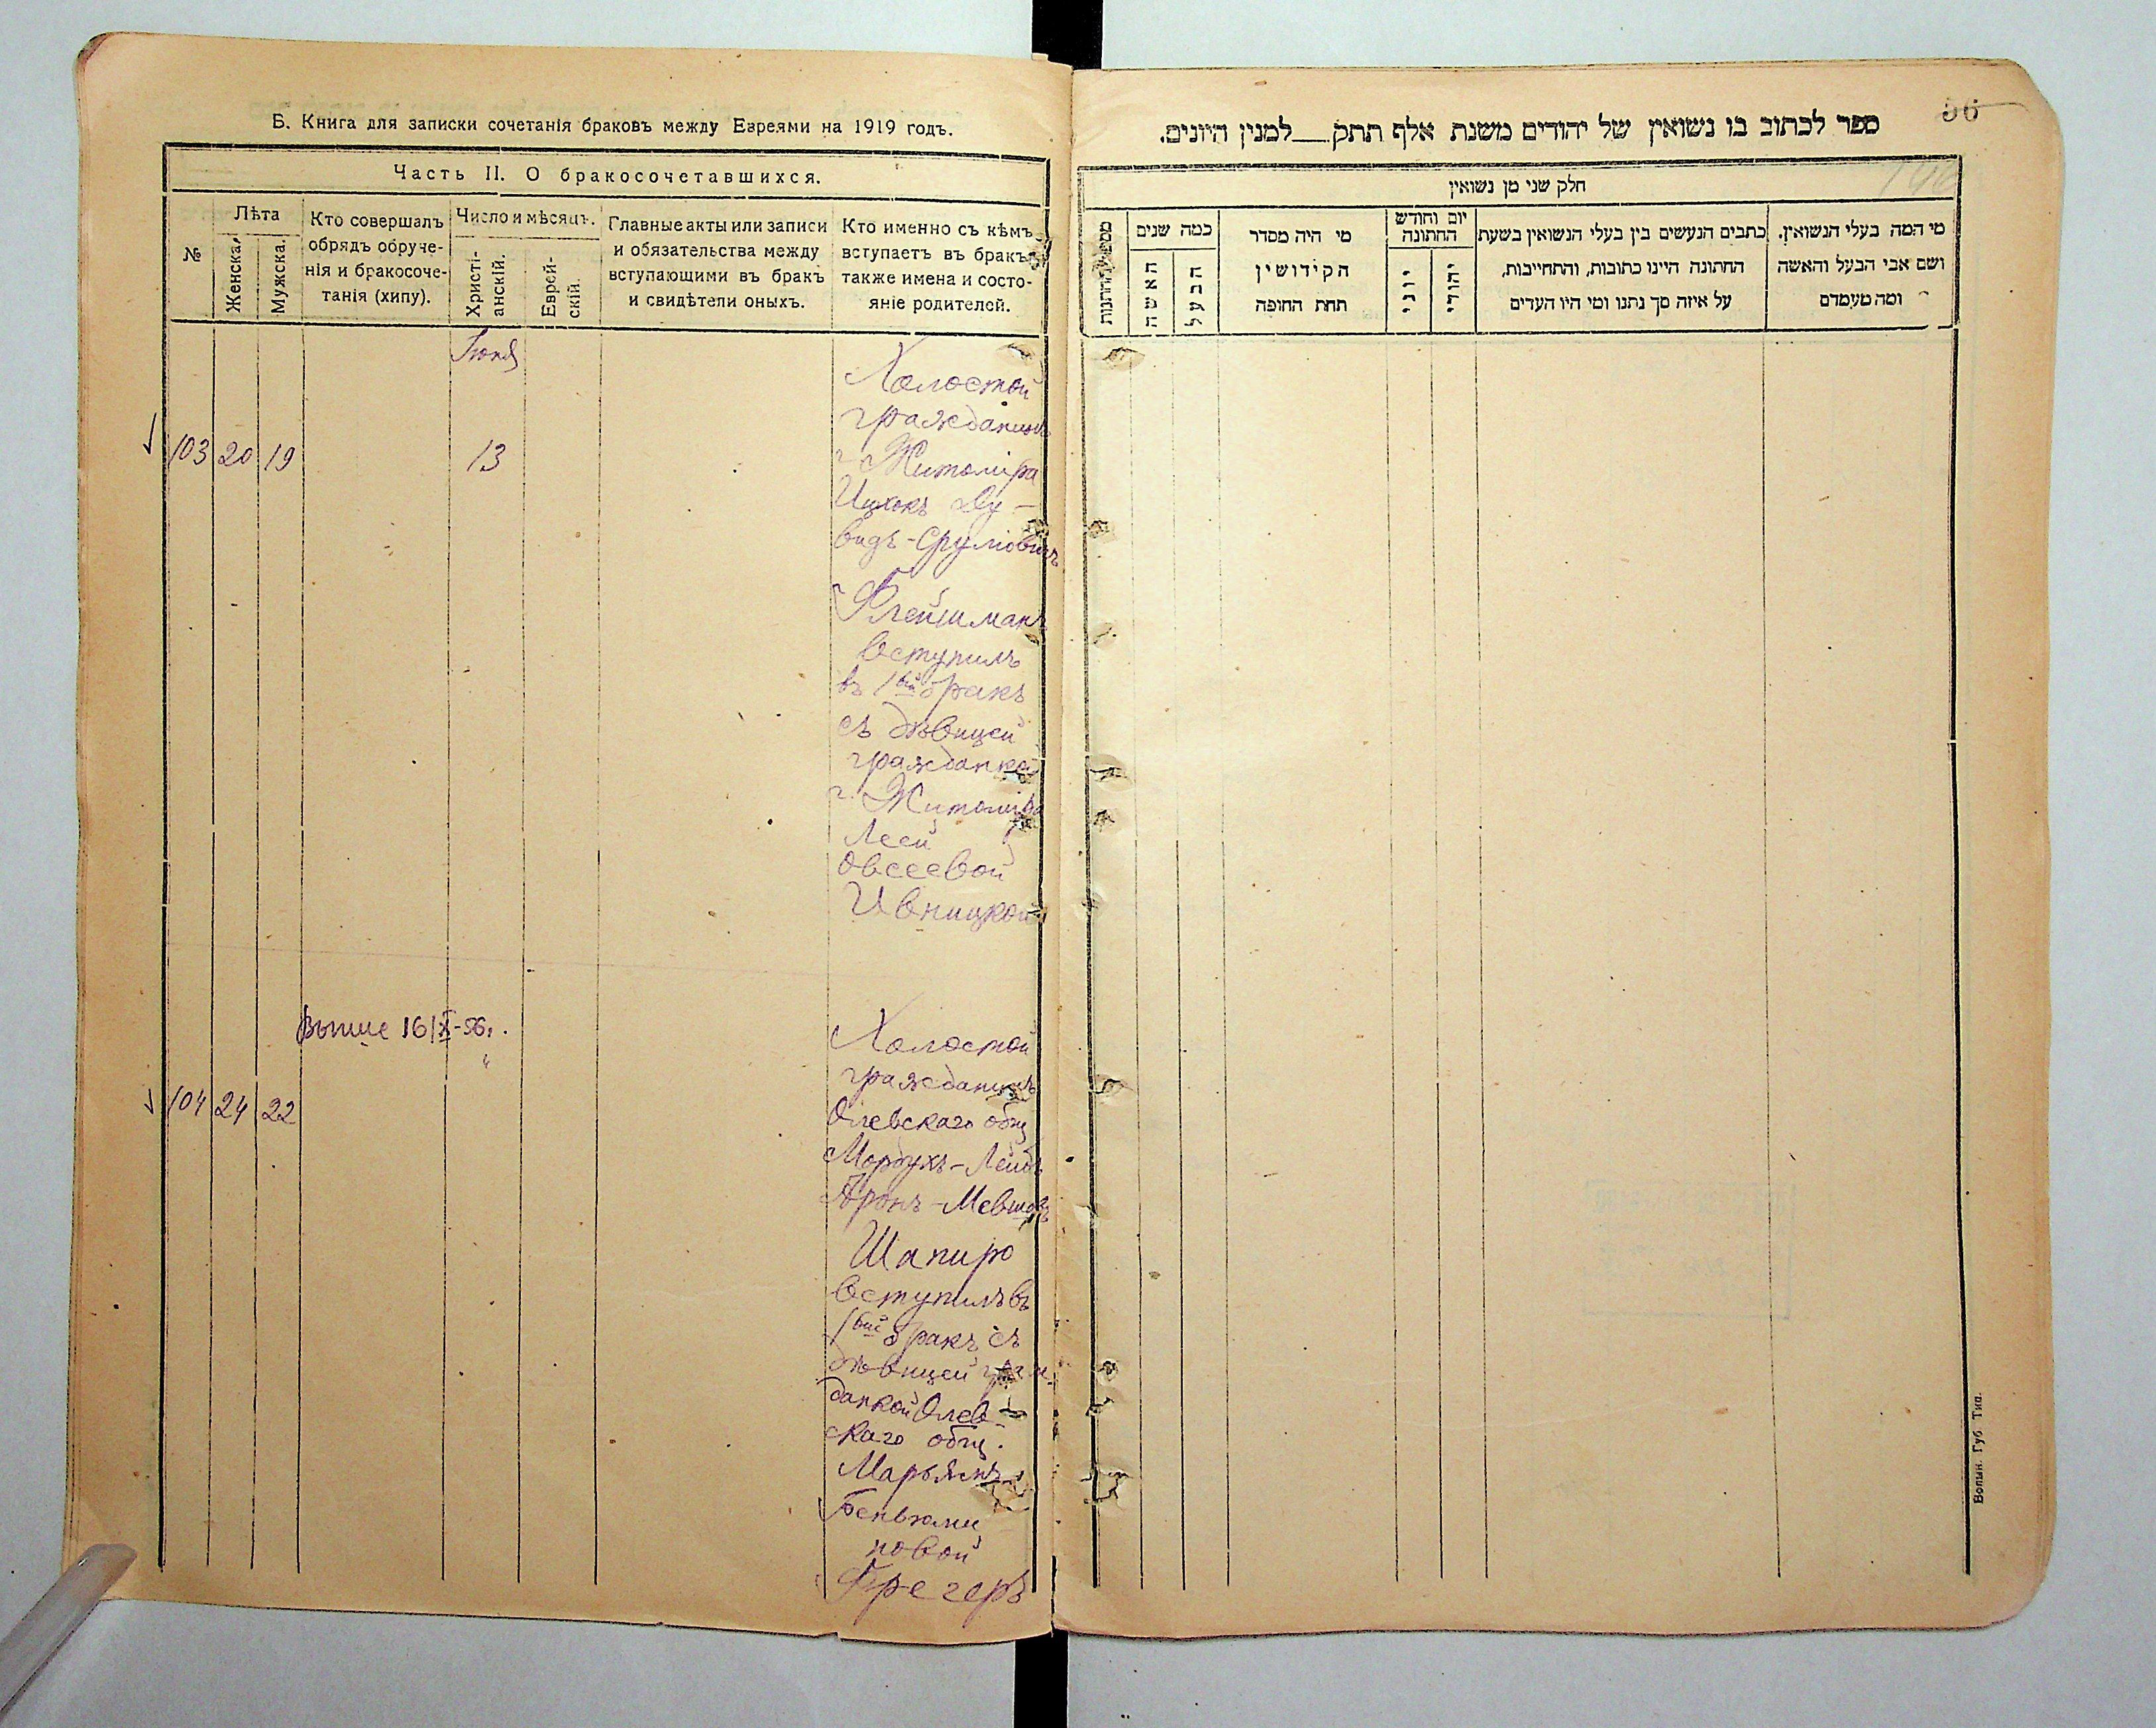 Б. Книга для записки сочетанія браковъ между Евреями на 1919 годъ.
Часть II. О бракосочетавшихся.
№
Лѣта
Женска.
Мужска.
Кто совершалъ
обрядъ обруче-
нія и бракосоче-
танія (хипу).
Число и мѣсяцъ.
Христі-
анскій.
Еврей-
скій.
Главные акты или записи
и обязательства между
вступающими въ бракъ
и свидѣтели оныхъ.
Кто именно съ кѣмъ
вступаетъ въ бракъ,
также имена и состо-
яніе родителей.
Іюня
103 20 19 13
Холостой
гражданинъ
г. Житоміра
Ицхокъ Ду-
видъ-Срулювичъ
Флейшманъ
вступилъ
въ 1вый бракъ
съ дѣвицей
гражданкой
г. Житоміра
Леей
Овсеевой
Ивницкой
16/X-56г.
"
104 24 22
Холостой
гражданинъ
Олевскаго общ
Мордухъ-Лейбъ
Аронъ-
Шапиро
вступилъ въ
1вый бракъ съ
дѣвицей граж-
данкой Олев-
скаго общ.
Марьямъ
Беньями
новой
Трегеръ
56
ספר לכתוב בו נשואין של יהודים משנת אלף תתק___למנין היונים.
חלק שני מן נשואין
מספר החתונות
כמה שנים
האשה
הבעל
מי היה מסדר
הקידושין
תחת החופה
יום וחודש
החתונה
יוני
יהודי
כתבים הנעשים בין בעלי הנשואין בשעת
החתונה היינו כתובות, והתחייבות,
על איזה סך נתנו ומי היו העדים
מי המה בעלי הנשואין.
ושם אבי הבעל והאשה
ומה מעמדם
Волын. Губ. Тип.